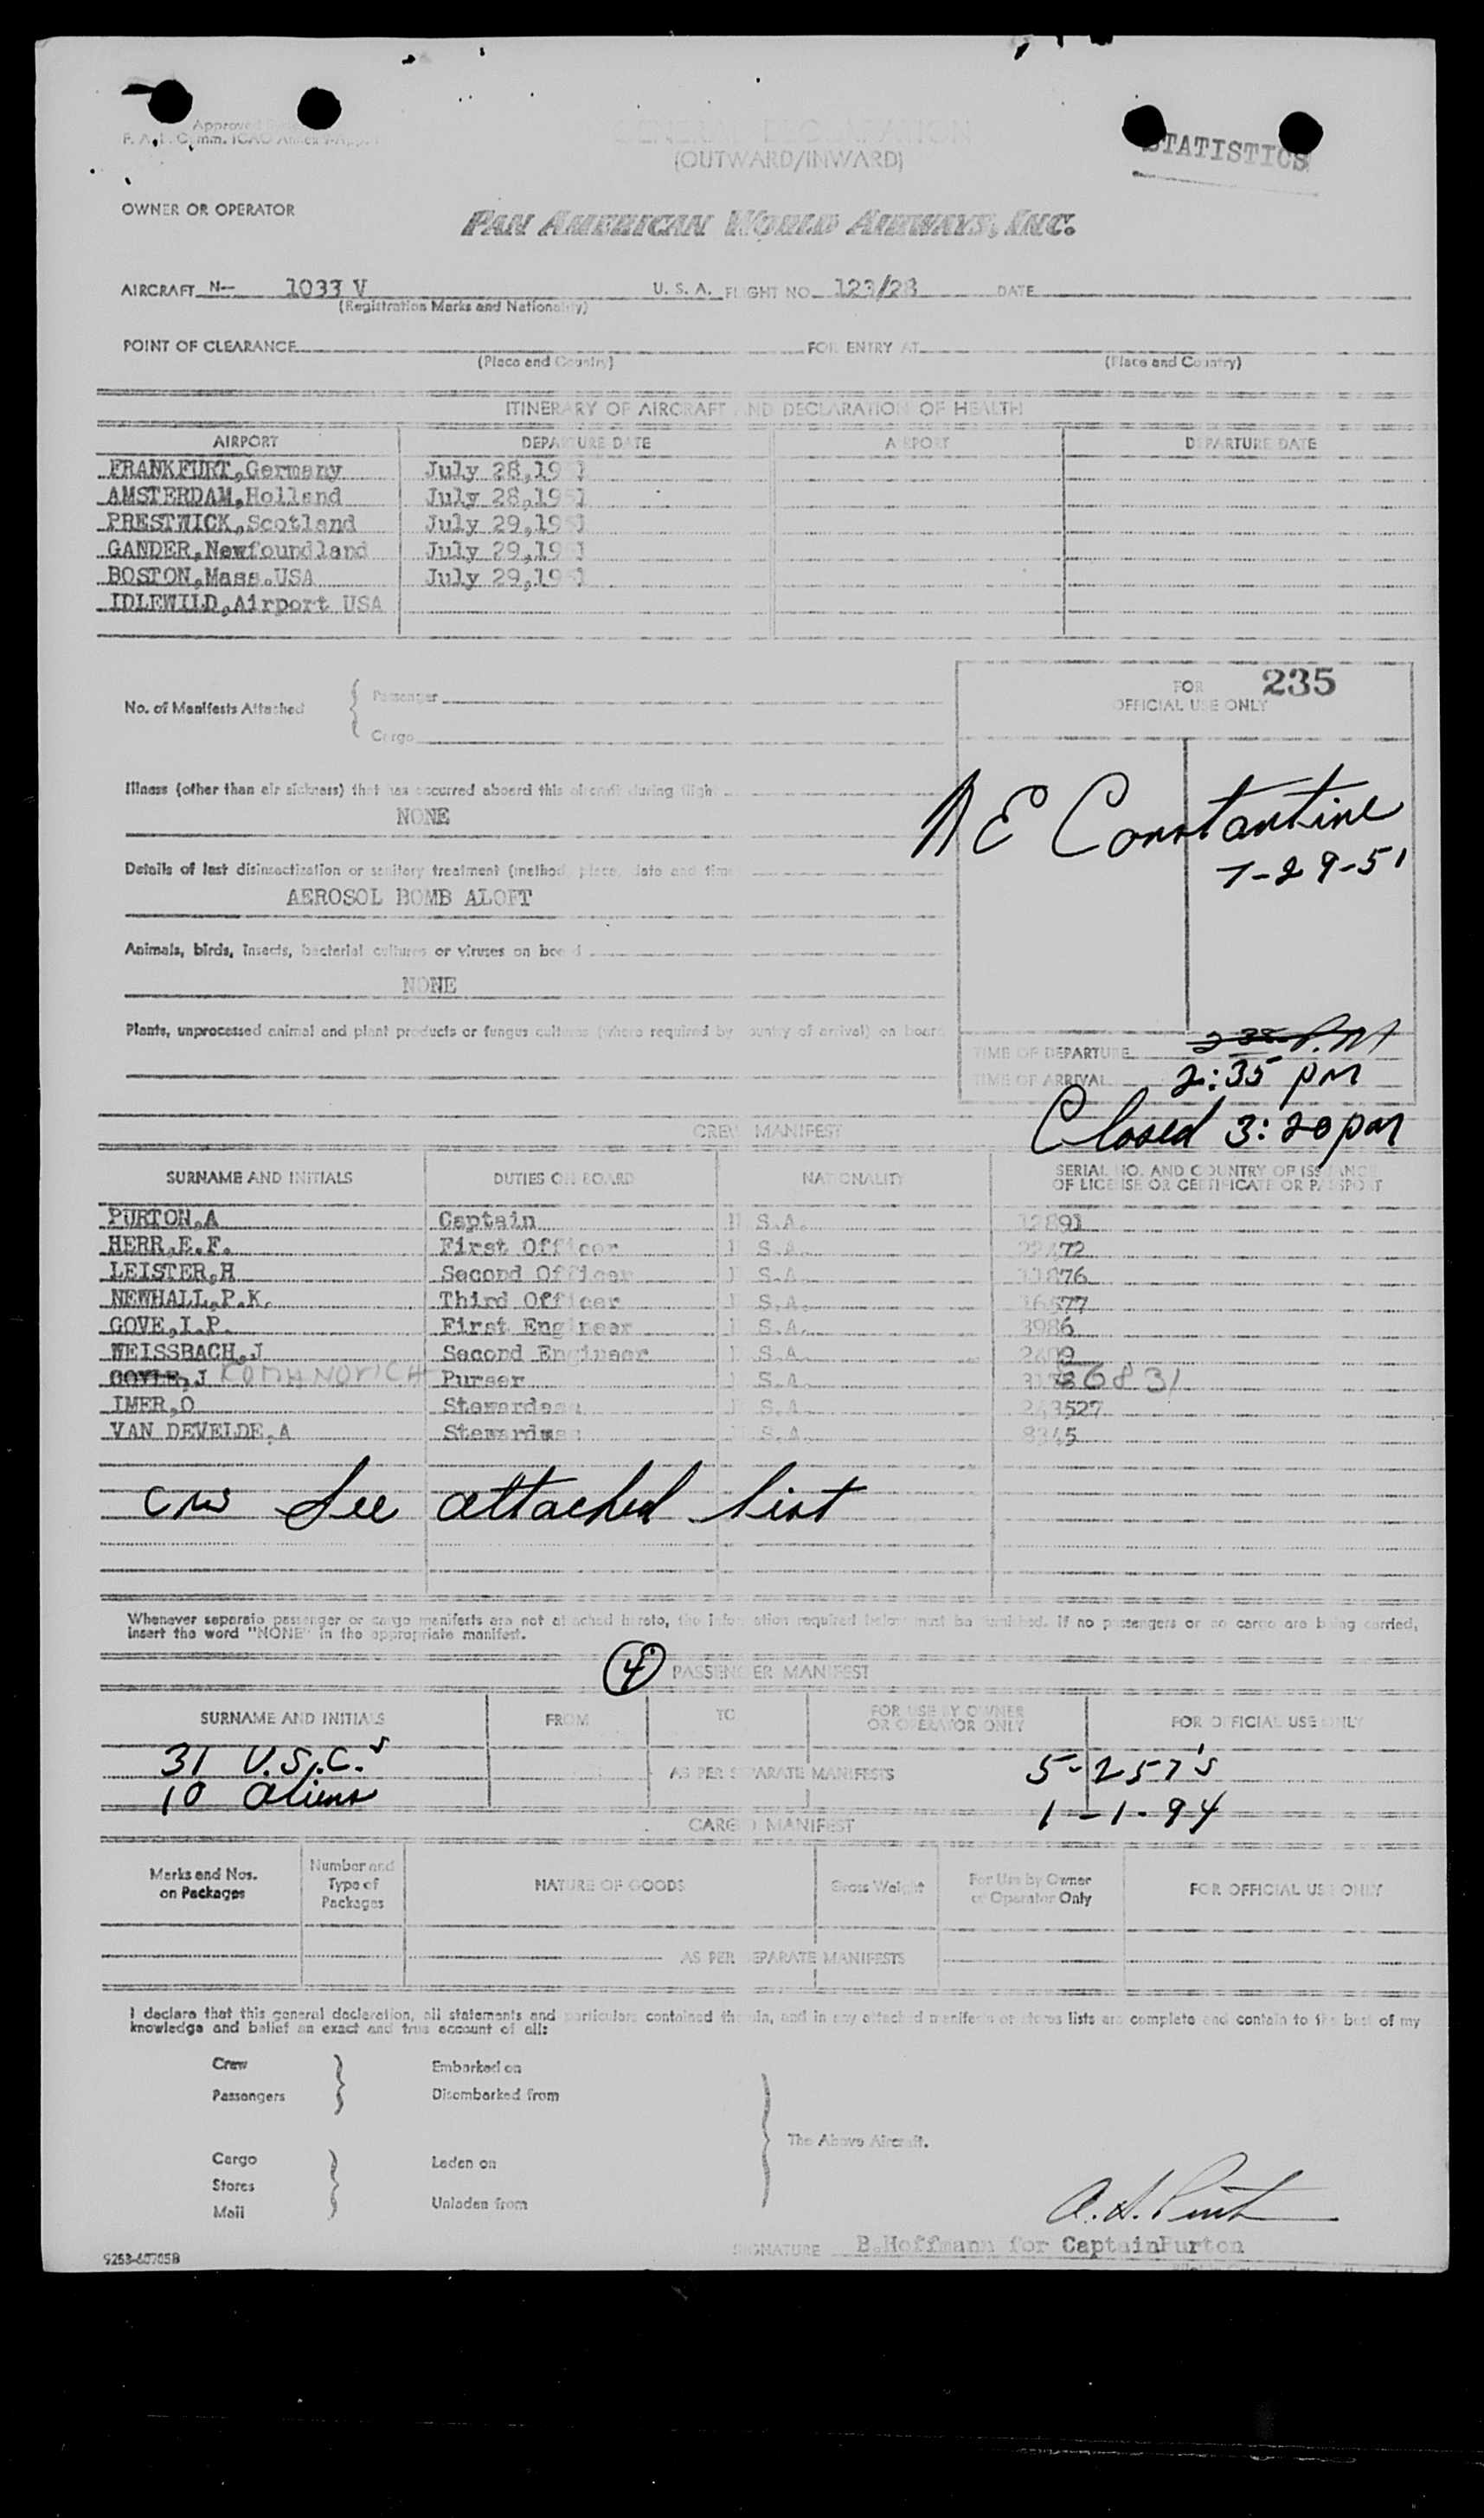 Approved
F. A. L. Comm. ICAO Annex
GENERAL DECLARATION
(OUTWARD/INWARD)
STATISTICS
OWNER OR OPERATOR
PAN AMERICAN WORLD AIRWAYS, INC.
AIRCRAFT N— 1033 V U. S. A. FLIGHT NO. 123/28 DATE
(Registration Marks and Nationality)
POINT OF CLEARANCE FOR ENTRY AT
(Place and Country) (Place and Country)
ITINERARY OF AIRCRAFT AND DECLARATION OF HEALTH
AIRPORT DEPARTURE DATE AIRPORT DEPARTURE DATE
FRANKFURT,Germany July 28,1951
AMSTERDAM,Holland July 28,1951
PRESTWICK,Scotland July 29,1951
GANDER,Newfoundland July 29,1951
BOSTON,Mass.USA July 29,1951
IDLEWILD,Airport USA
FOR 235
OFFICIAL USE ONLY
No. of Manifests Attached
Passenger
Cargo
Illness (other than air sickness) that has occurred aboard this aircraft during flight
NONE
Constantine
7-29-51
Details of last disinsectization or sanitary treatment (method, place, date and time
AEROSOL BOMB ALOFT
Animals, birds, insects, bacterial cultures or viruses on board
NONE
Plants, unprocessed animal and plant products or fungus cultures (where required by country of arrival) on board
TIME OF DEPARTURE 2 35 P.M
TIME OF ARRIVAL 2:35 pm
Closed 3:20 pm
CREW MANIFEST
SURNAME AND INITIALS DUTIES ON BOARD NATIONALITY SERIAL NO. AND COUNTRY OF ISSUANCE
OF LICENSE OR CERTIFICATE OR PASSPORT
PURTON,A Captain U.S.A. 12891
HERR,E.F. First Officer U.S.A. 22472
LEISTER,H Second Officer U.S.A. 11876
NEWHALL,P.K. Third Officer U.S.A. 16577
GOVE,I.P. First Engineer U.S.A. 3986
WEISSBACH,J Second Engineer U.S.A.
J ROMANOVICH Purser U.S.A. 6831
IMER,O Stewardess U.S.A. 243527
VAN DEVELDE,A Stewardess U.S.A. 8345
See attached list
Whenever separate passenger or cargo manifests are not attached hereto, the information required below must be furnished. If no passengers or no cargo are being carried,
insert the word "NONE" in the appropriate manifest.
4 PASSENGER MANIFEST
SURNAME AND INITIALS FROM TO FOR USE BY OWNER
OR OPERATOR ONLY FOR OFFICIAL USE ONLY
31 U.S.C.s AS PER SEPARATE MANIFESTS 5-257's
10 aliens 1-1-94
CARGO MANIFEST
Marks and Nos.
on Packages
Number and
Type of
Packages
NATURE OF GOODS
Gross Weight
For Use by Owner
or Operator Only
FOR OFFICIAL USE ONLY
AS PER SEPARATE MANIFESTS
I declare that this general declaration, all statements and particulars contained therein, and in any attached manifests or stores lists are complete and contain to the best of my
knowledge and belief an exact and true account of all:
Crew Embarked on
Passengers Disembarked from
The Above Aircraft.
Cargo Laden on
Stores
Mail Unladen from
SIGNATURE B.Hoffmann for CaptainPurton
9253-60705B